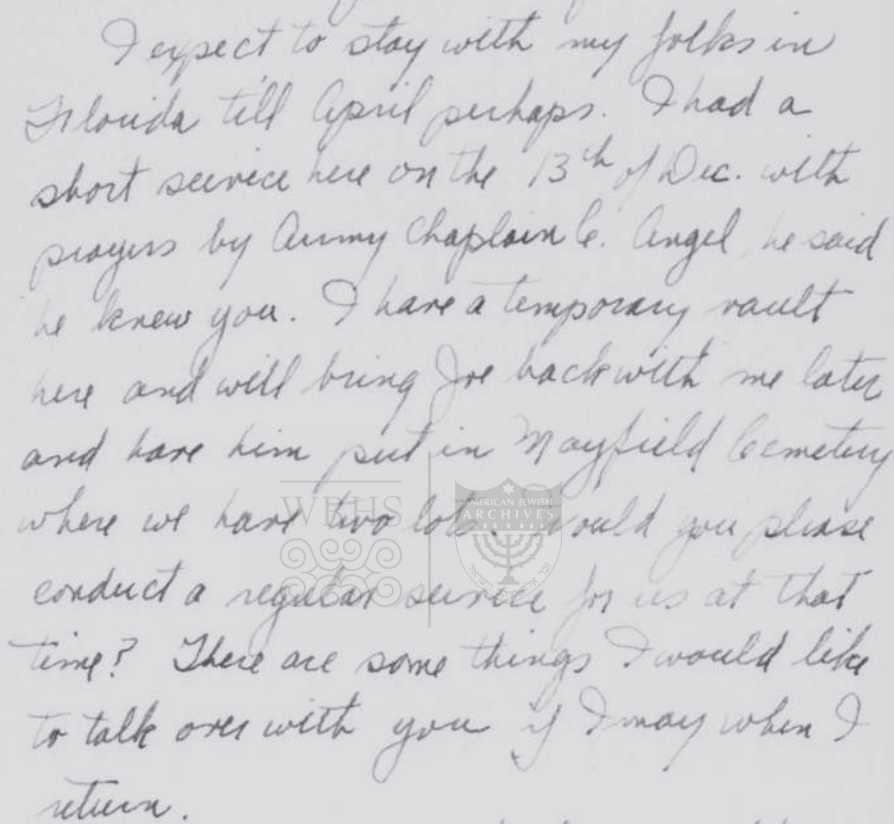 I expect to stay with my folks in
Florida till April perhaps. I had a
short service here on the 13th of Dec. with
prayers by Army Chaplain C. Angel, he said
he knew you. I have a temporary vault
here and will bring Joe back with me later
and have him put in Mayfield Cemetery
where we have two lots. Would you please
WRHS
AMERICAN JEWISH
ARCHIVES
conduct a regular service for us at that
time? There are some things I would like
to talk over with you if I may when I
return.